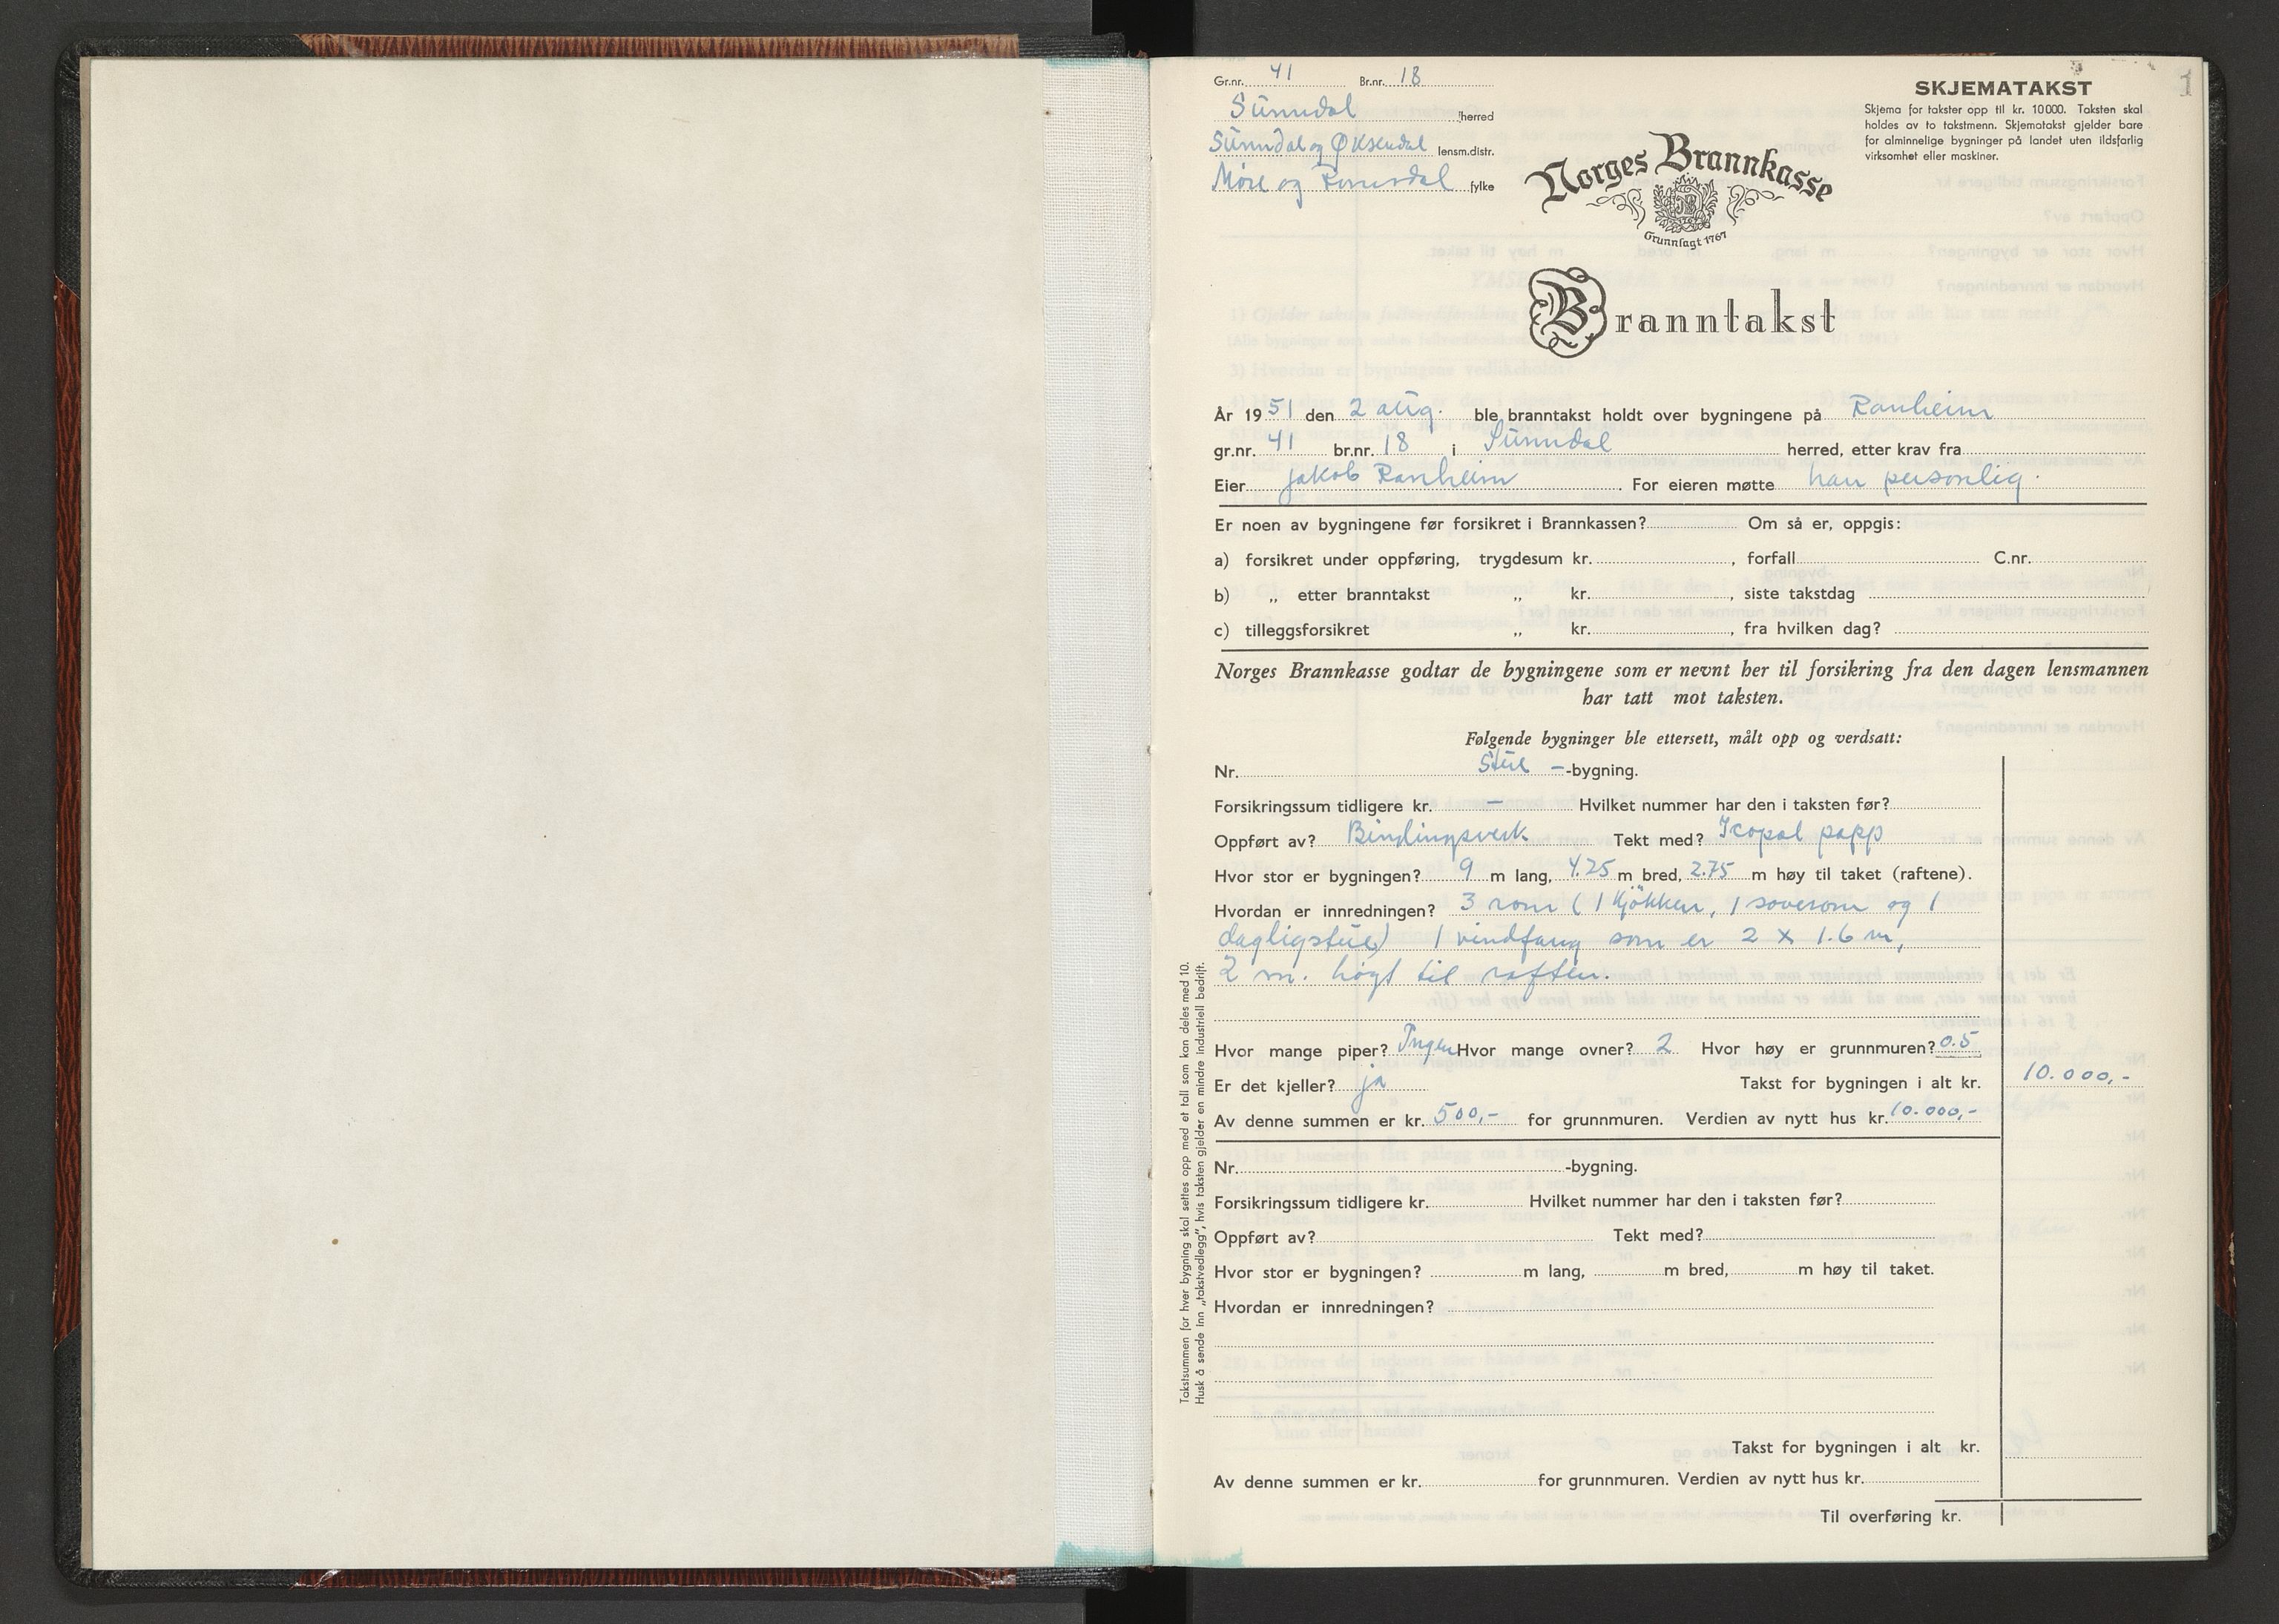 Gr.nr. 41 Br.nr. 18
Sunndal herred
Sunndal og Øksendal lensm.distr.
Møre og Romsdal fylke
SKJEMATAKST
1
Skjema for takster opp til kr. 10000. Taksten skal
holdes av to takstmenn. Skjematakst gjelder bare
for alminnelige bygninger på landet uten ildsfarlig
virksomhet eller maskiner.
Norges Brannkasse
Grunnlagt 1767
Branntakst
År 1951 den 2 aug. ble branntakst holdt over bygningene på Ranheim
gr.nr. 41 br.nr. 18 i Sunndal herred, etter krav fra
Eier Jakob Ranheim. For eieren møtte han personlig.
Er noen av bygningene før forsikret i Brannkassen? Om så er, oppgis:
a) forsikret under oppføring, trygdesum kr. , forfall C.nr.
b) „ etter branntakst „ kr. , siste takstdag
c) tilleggsforsikret „ kr. , fra hvilken dag?
Norges Brannkasse godtar de bygningene som er nevnt her til forsikring fra den dagen lensmannen
har tatt mot taksten.
Følgende bygninger ble ettersett, målt opp og verdsatt:
Nr. Stue – -bygning.
Forsikringssum tidligere kr. – Hvilket nummer har den i taksten før?
Oppført av? Bindingsverk Tekt med? Icopal papp
Hvor stor er bygningen? 9 m lang, 4.25 m bred, 2.75 m høy til taket (raftene).
Hvordan er innredningen? 3 rom (1 kjökken, 1 soverom og 1
dagligstue) 1 vindfang som er 2 x 1.6 m,
2 m. høgt til raften.
Hvor mange piper? Ingen Hvor mange ovner? 2 Hvor høy er grunnmuren? 0.5
Er det kjeller? ja Takst for bygningen i alt kr. 10.000,-
Av denne summen er kr. 500,- for grunnmuren. Verdien av nytt hus kr. 10.000,-
Nr. -bygning.
Forsikringssum tidligere kr. Hvilket nummer har den i taksten før?
Oppført av? Tekt med?
Hvor stor er bygningen? m lang, m bred, m høy til taket.
Hvordan er innredningen?
Takst for bygningen i alt kr.
Av denne summen er kr. for grunnmuren. Verdien av nytt hus kr.
Til overføring kr.
Takstsummen for hver bygning skal settes opp med et tall som kan deles med 10.
Husk å sende inn „takstvedlegg", hvis taksten gjelder en mindre industriell bedrift.